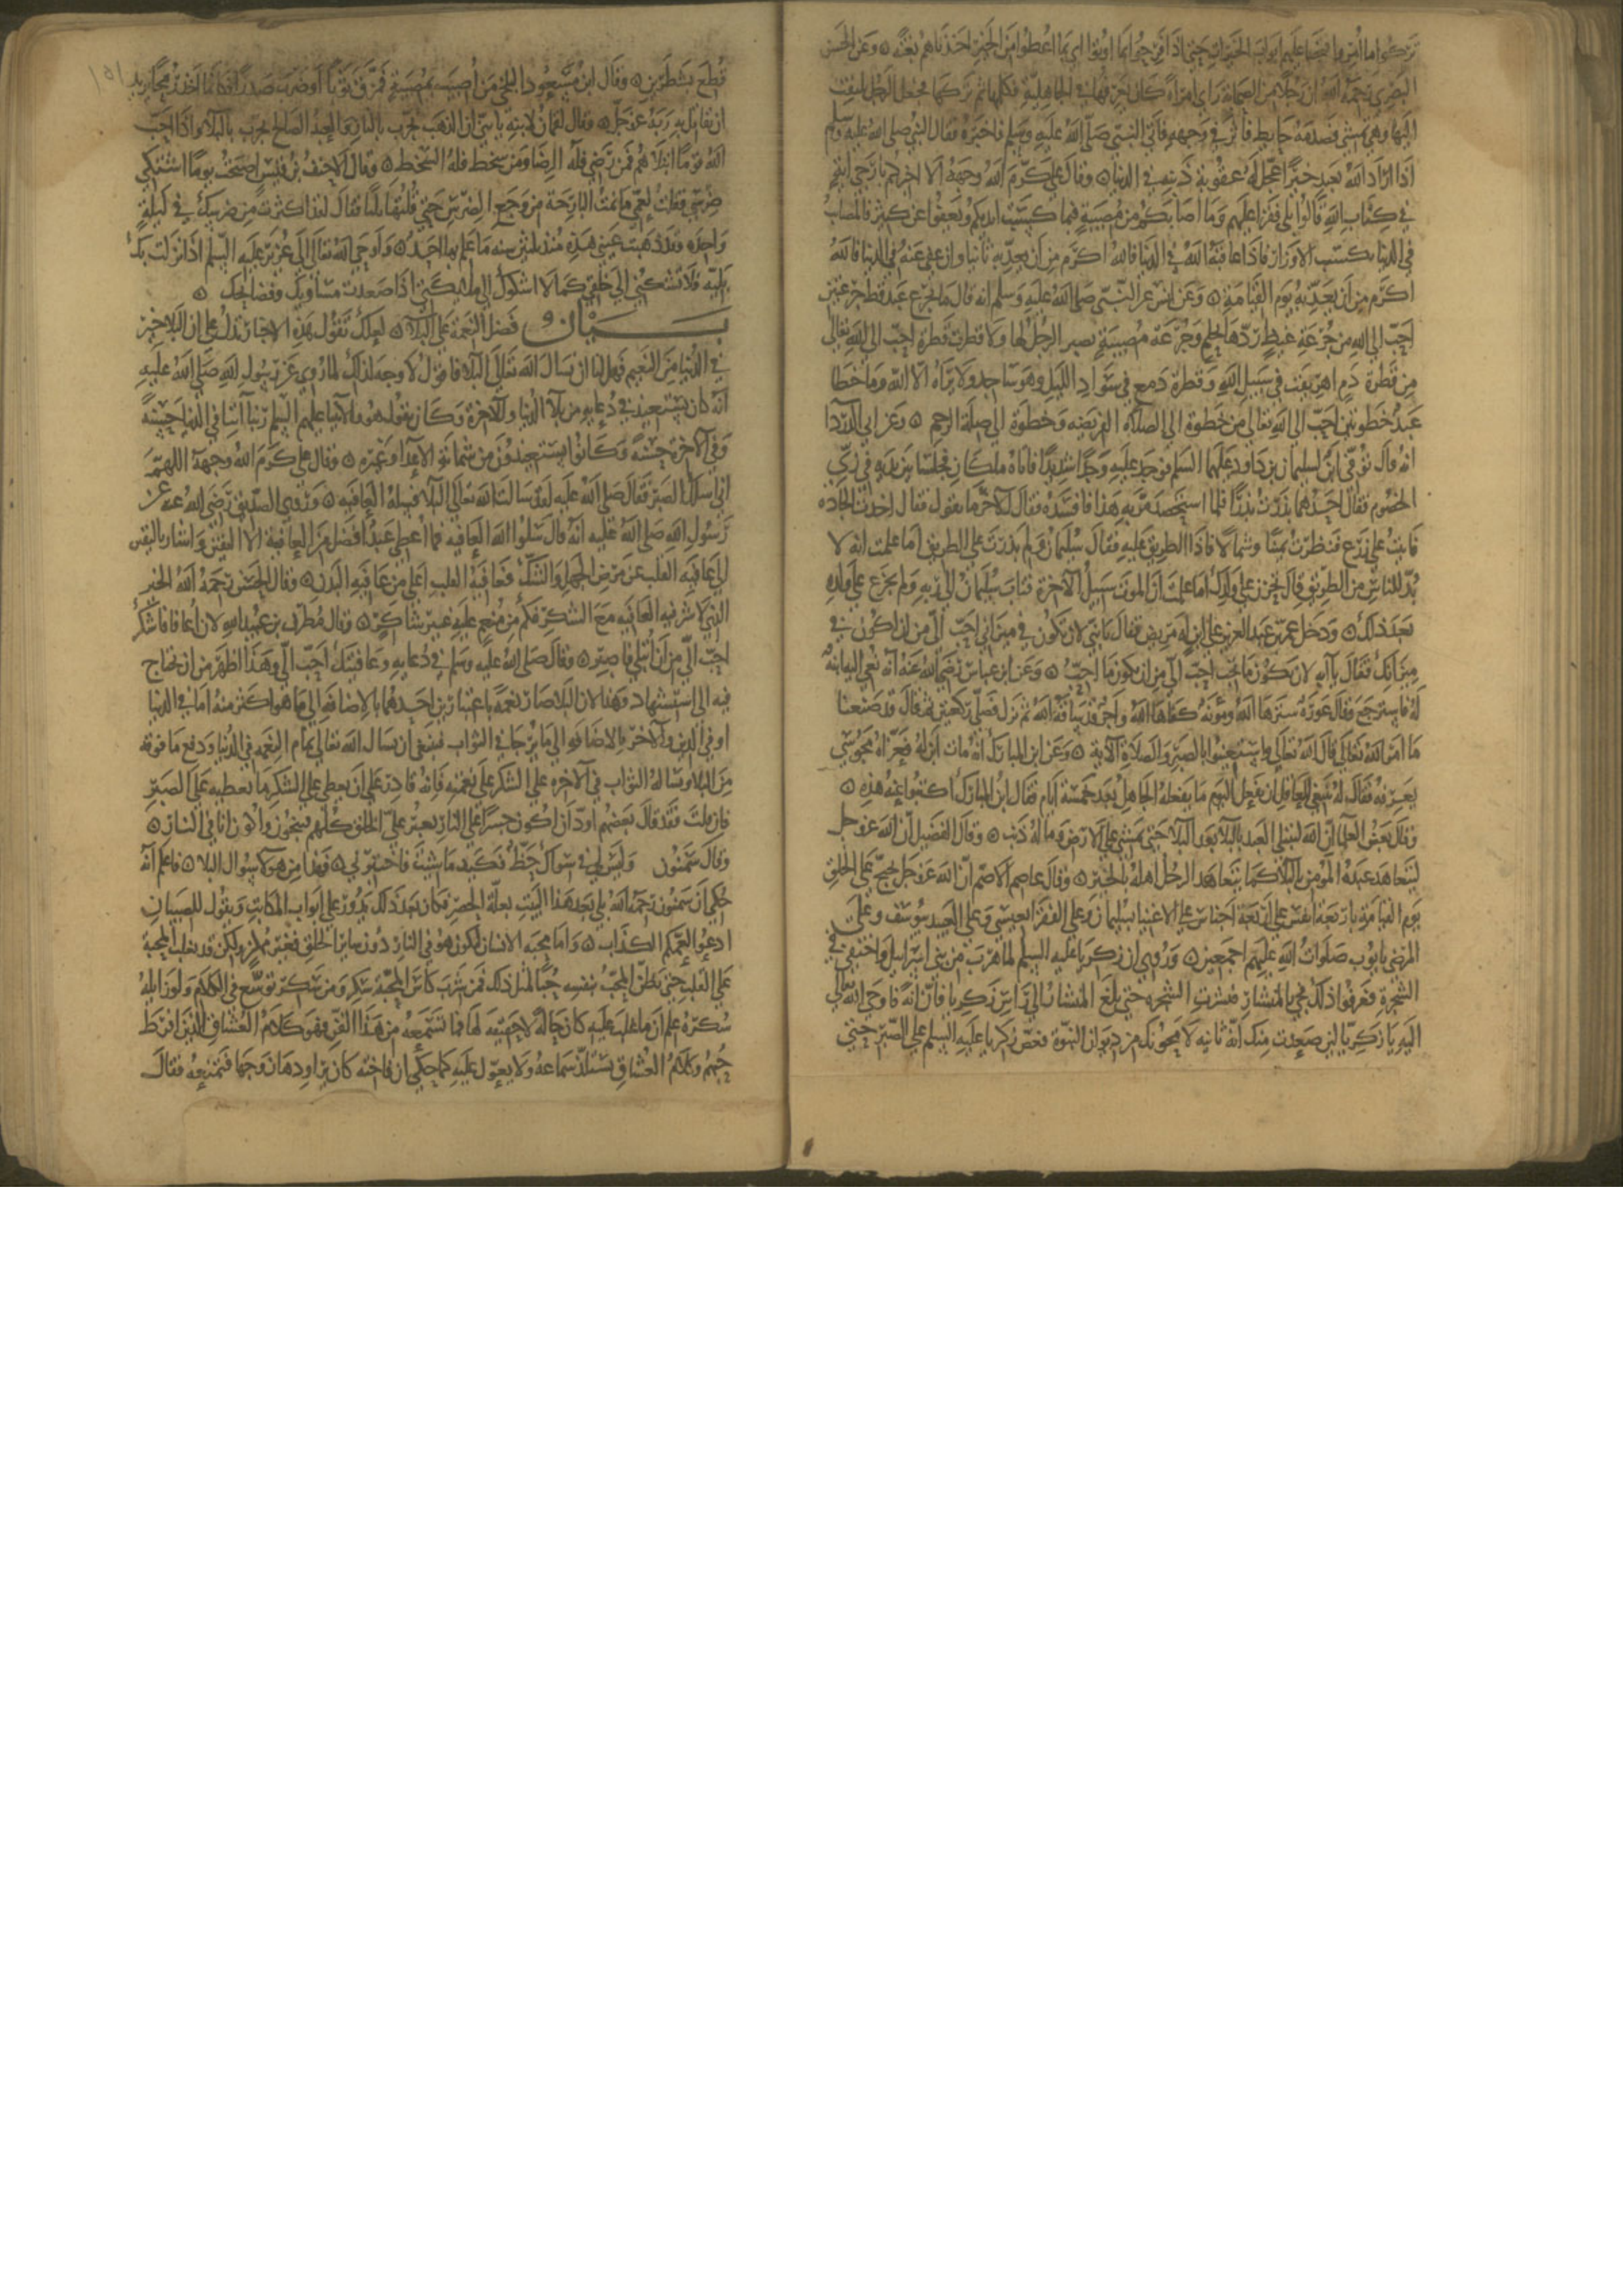 تركوا ما امروا به فتحنا عليهم ابواب الخيرات حتى اذا فرحوا بما اوتوا اي بما اعطوا من الخير اخذناهم بغتة ۞ وعن الحسن
البصري رحمه الله ان رجلا من الصحابة راى امراة كان يعرفها في الجاهلية فكلمها ثم تركها فجعل الرجل يلتفت
اليها وهي تمشي فصدمه حايط فاثر في وجهه فاتى النبي صلى الله عليه وسلم فاخبره فقال النبي صلى الله عليه وسلم
اذا اراد الله بعبد خيرا عجل له عقوبة ذنبه في الدنيا ۞ وقال علي كرم الله وجهه الا اخبركم بارجى اية
في كتاب الله قالوا بلى فقرا عليهم وما اصابكم من مصيبة فبما كسبت ايديكم ويعفوا عن كثير فالمصايب
في الدنيا بكسب الاوزار فاذا عاقبه الله في الدنيا فالله اكرم من ان يعذبه ثانيا وان عفى عنه في الدنيا فالله
اكرم من ان يعذبه يوم القيامة ۞ وعن انس عن النبي صلى الله عليه وسلم انه قال ما تجرع عبد قط جرعتين
احب الى الله من جرعة غيظ ردها بحلم وجرعة مصيبة يصبر الرجل لها ولا قطرت قطرة احب الى الله تعالى
من قطرة دم اهريقت في سبيل الله وقطرة دمع في سواد الليل وهو ساجد ولا يراه الا الله وما خطا
عبد خطوتين احب الى الله تعالى من خطوة الى الصلاة الفريضه وخطوة الى صلة الرحم ۞ وعن ابي الدردا
انه قال توفي ابن لسليمان بن داود عليهما السلم فوجد عليه وجدا شديدا فاتاه ملكان فجلسا بين يديه في زي
الخصوم فقال احدهما بذرت بذرا فلما استحصد مر به هذا فافسده فقال للاخر ما يقول فقال اخذت الجاده
فاتيت على زرع فنظرت يمينا وشمالا فاذا الطريق عليه فقال سليمان ولم بذرت على الطريق اما علمت انه لا
بد للناس من الطريق قال فلم تحزن على ولدك اما علمت ان الموت سبيل الاخرة فتاب سليمان الى ربه ولم يجزع على ولده
بعد ذلك ۞ ودخل عمر بن عبد العزيز على ابن له مريض فقال يا بني لان تكون في ميزاني احب الي من ان اكون في
ميزانك فقال يا ابه لان يكون ما تحب احب الي من ان يكون ما احب ۞ وعن ابن عباس رضي الله عنه انه نعي اليه ابنة
له فاسترجع وقال عورة سترها الله ومؤنة كفاها الله واجر قد ساقه الله ثم نزل فصلى ركعتين ثم قال قد صنعنا
ما امر الله تعالى قال الله تعالى واستعينوا بالصبر والصلاة الاية ۞ وعن ابن المبارك انه مات ابن له فعزاه مجوسي
يعرفه فقال له ينبغي للعاقل ان يفعل اليوم ما يفعله الجاهل بعد خمسة ايام فقال ابن المبارك اكتبوا عنه هذه ۞
وقال بعض العلما ان الله ليبتلي العبد بالبلا بعد البلا حتى يمشي على الارض وما له ذنب ۞ وقال الفضيل ان الله عز وجل
ليتعاهد عبده المومن بالبلا كما يتعاهد الرجل اهله بالخير ۞ وقال حاتم الاصم ان الله عز وجل يحتج على الخلق
يوم القيامة باربعة انفس على اربعة اجناس على الاغنيا بسليمان وعلى الفقرا بعيسى وعلى العبيد بيوسف وعلى
المرضى بايوب صلوات الله عليهم اجمعين ۞ وروي ان زكريا عليه السلم لما هرب من بني اسرايل واختفى في
الشجرة فعرفوا ذلك فجي بالمنشار فنشرت الشجره حتى بلغ المنشار الى راس زكريا فان انة فاوحى الله تعالى
اليه يا زكريا لين صعدت منك انة ثانيه لامحونك من ديوان النبوة فعض زكريا عليه السلم على الصبر حتى
قطع بشطرين ۞ وقال ابن مسعود البلخي من اصيب بمصيبة فمزق ثوبا او ضرب صدرا فكانما اخذ رمحا يريد
ان يقاتل به ربه عز وجل ۞ وقال لقمان لابنه يا بني ان الذهب يجرب بالنار والعبد الصالح يجرب بالبلا واذا احب
الله قوما ابتلاهم فمن رضي فله الرضا ومن سخط فله السخط ۞ وقال الاحنف بن قيس اصبحت يوما اشتكي
ضرسي فقلت لعمي ما نمت البارحة من وجع الضرس حتى قلتها ثلثا فقال لقد اكثرت من ضرسك في ليلة
واحده وقد ذهبت عيني هذه منذ ثلثين سنه ما علم بها احد ۞ واوحى الله تعالى الى عزير عليه السلم اذا نزلت بك
بلية فلا تشكني الى خلقي كما لا اشكوك الى ملايكتي اذا صعدت مساويك وفضايحك ۞
بيان فضل النعمة على البلا ۞ لعلك تقول هذه الاخبار تدل على ان البلا خير
في الدنيا من النعيم فهل لنا ان نسال الله تعالى البلا فاقول لا وجه لذلك لما روي عن رسول الله صلى الله عليه
انه كان يستعيذ في دعايه من بلا الدنيا والاخرة وكان يقول هو والانبيا عليهم السلم ربنا آتنا في الدنيا حسنة
وفي الاخرة حسنة وكانوا يستعيذون من شماتة الاعدا وغيره ۞ وقال علي كرم الله وجهه اللهم
اني اسلك الصبر فقال صلى الله عليه لقد سالت الله تعالى البلا فسله العافيه ۞ وروى الصديق رضي الله عنه عن
رسول الله صلى الله عليه انه قال سلوا الله العافيه فما اعطي عبد افضل من العافية الا اليقين واشار باليقين
الى عافية القلب عن مرض الجهل والشك فعافية القلب اعلى من عافية البدن ۞ وقال الحسن رحمه الله الخير
الذي لا شر فيه العافيه مع الشكر فكم من منعم عليه غير شاكر ۞ وقال مطرف بن عبد الله لان اعافا فاشكر
احب الي من ان ابتلى فاصبر ۞ وقال صلى الله عليه وسلم في دعايه وعافيتك احب الي وهذا اظهر من ان نحتاج
فيه الى استشهاد وهذا لان البلا صار نعمة باعتبارين احدهما بالاضافة الى ما هو اكثر منه اما في الدنيا
او في الدين والاخر بالاضافه الى ما يرجا في الثواب فينبغي ان يسال الله تعالى تمام النعمه في الدنيا ودفع ما فوقه
من البلا ويساله الثواب في الاخره على الشكر على نعمته فانه قادر على ان يعطي على الشكر ما يعطيه على الصبر
فان قلت فقد قال بعضهم اود ان اكون جسرا على النار يعبر علي الخلق كلهم فينجون واكون انا في النار ۞
وقال سمنون وليس لي في سواك حظ فكيف ما شيت فاختبرني ۞ فهذا من هولا سوال البلا ۞ فاعلم انه
حكي ان سمنون رحمه الله بلي بعد هذا البيت بعلة الحصر فكان بعد ذلك يدور على ابواب المكاتب ويقول للصبيان
ادعوا لعمكم الكذاب ۞ واما محبه الانسان ليكون هو في النار دون ساير الخلق فغير ممكن ولكن قد يغلب المحبة
على القلب حتى يظن المحب بنفسه حبا لمثل ذلك فمن شرب كاس المحبة سكر ومن سكر توسع في الكلام ولو زايله
سكره علم ان ما غلب عليه كان حالة لا حقيقه لها فما تسمعه من هذا الفن فهو كلام العشاق الذين افرط
حبهم وكلام العشاق يستلذ سماعه ولا يعول عليه كما حكي ان فاخته كان يراودها زوجها فتمنعه فقال